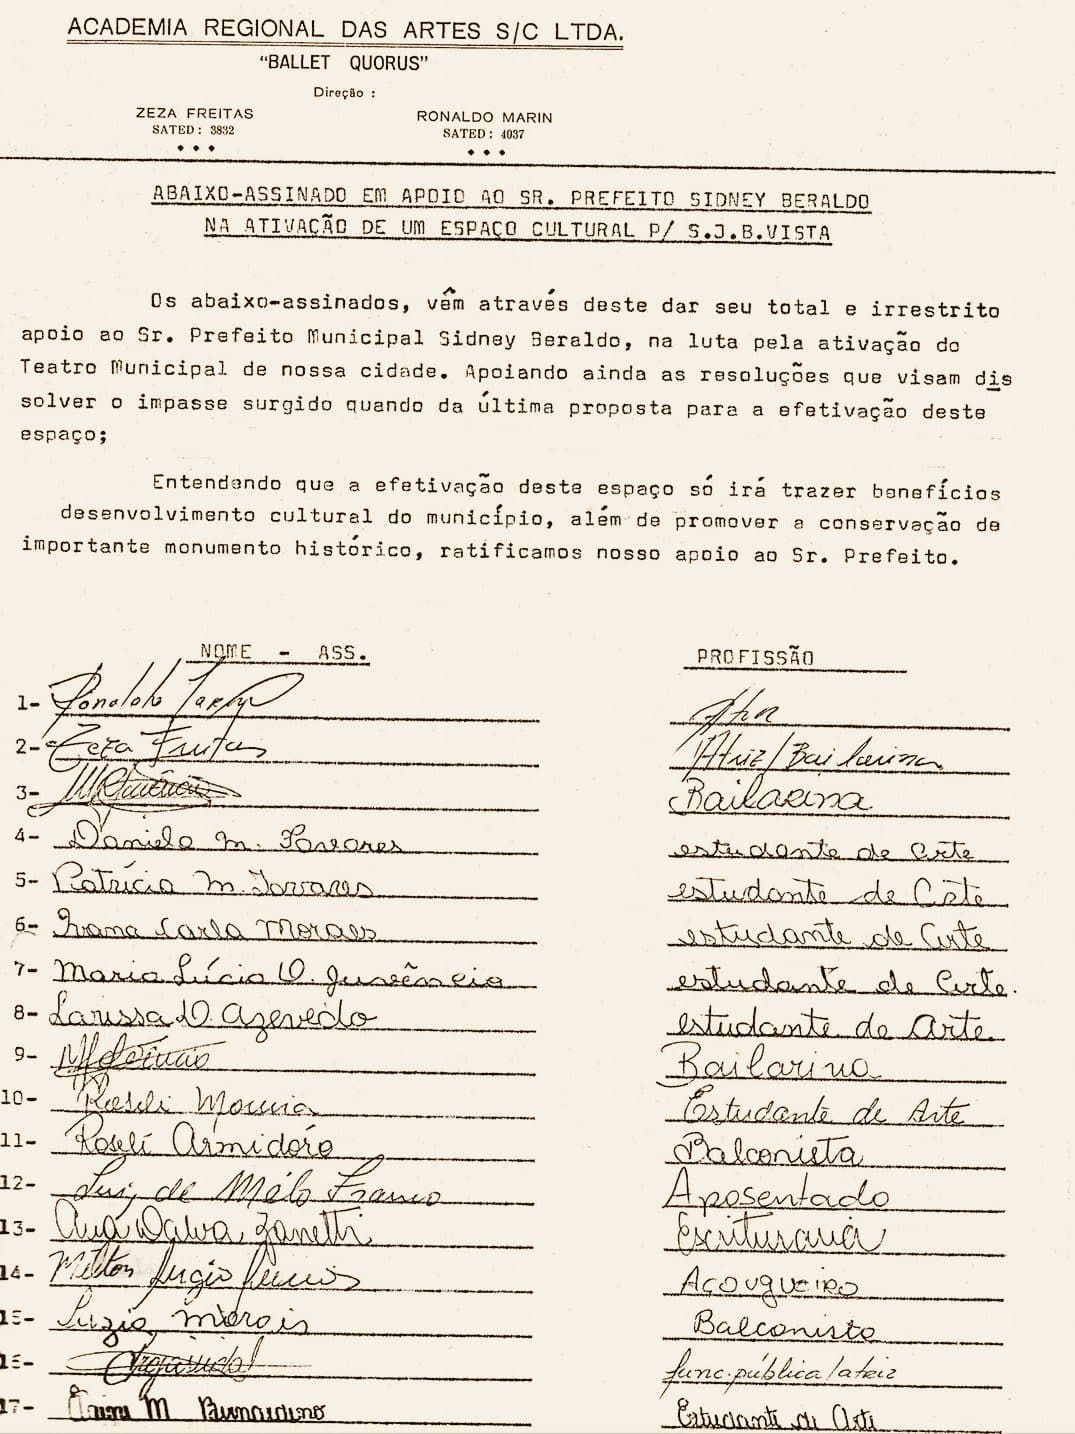 ACADEMIA REGIONAL DAS ARTES S/C LTDA.
"BALLET QUORUS"
Direção :
ZEZA FREITAS RONALDO MARIN
SATED : 3832 SATED : 4037
ABAIXO-ASSINADO EM APOIO AO SR. PREFEITO SIDNEY BERALDO
NA ATIVAÇÃO DE UM ESPAÇO CULTURAL P/ S.J.B.VISTA
Os abaixo-assinados, vêm através deste dar seu total e irrestrito
apoio ao Sr. Prefeito Municipal Sidney Beraldo, na luta pela ativação do
Teatro Municipal de nossa cidade. Apoiando ainda as resoluções que visam dis
solver o impasse surgido quando da última proposta para a efetivação deste
espaço;
Entendendo que a efetivação deste espaço só irá trazer benefícios
desenvolvimento cultural do município, além de promover a conservação de
importante monumento histórico, ratificamos nosso apoio ao Sr. Prefeito.
NOME - ASS. PROFISSÃO
1- Ronaldo
2- Zeza Freitas Atriz/Bailarina
3- Bailarina
4- Daniela M. Tavares estudante de Arte
5- Patrícia M. Tavares estudante de Arte
6- Ivana Carla Moraes estudante de Arte
7- Maria Lúcia O. Juvêncio estudante de Arte.
8- Larissa O. Azevedo estudante de Arte.
9- Bailarina
10- Roseli Estudante de Arte
11- Roseli Armidoro Balconista
12- Luiz de Mélo Franco Aposentado
13- Ana Dalva Zanetti Escrituraria
14- Milton Sergio Açougueiro
15- Luzia Morais Balconista
16- func. pública/atriz
17- M Bernardino Estudante de Arte